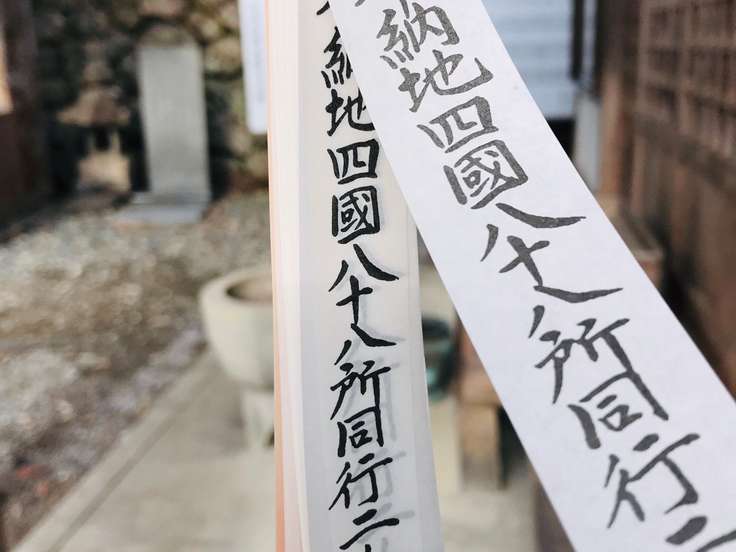 納地四國八十八所同行二
納地四國八十八所同行二